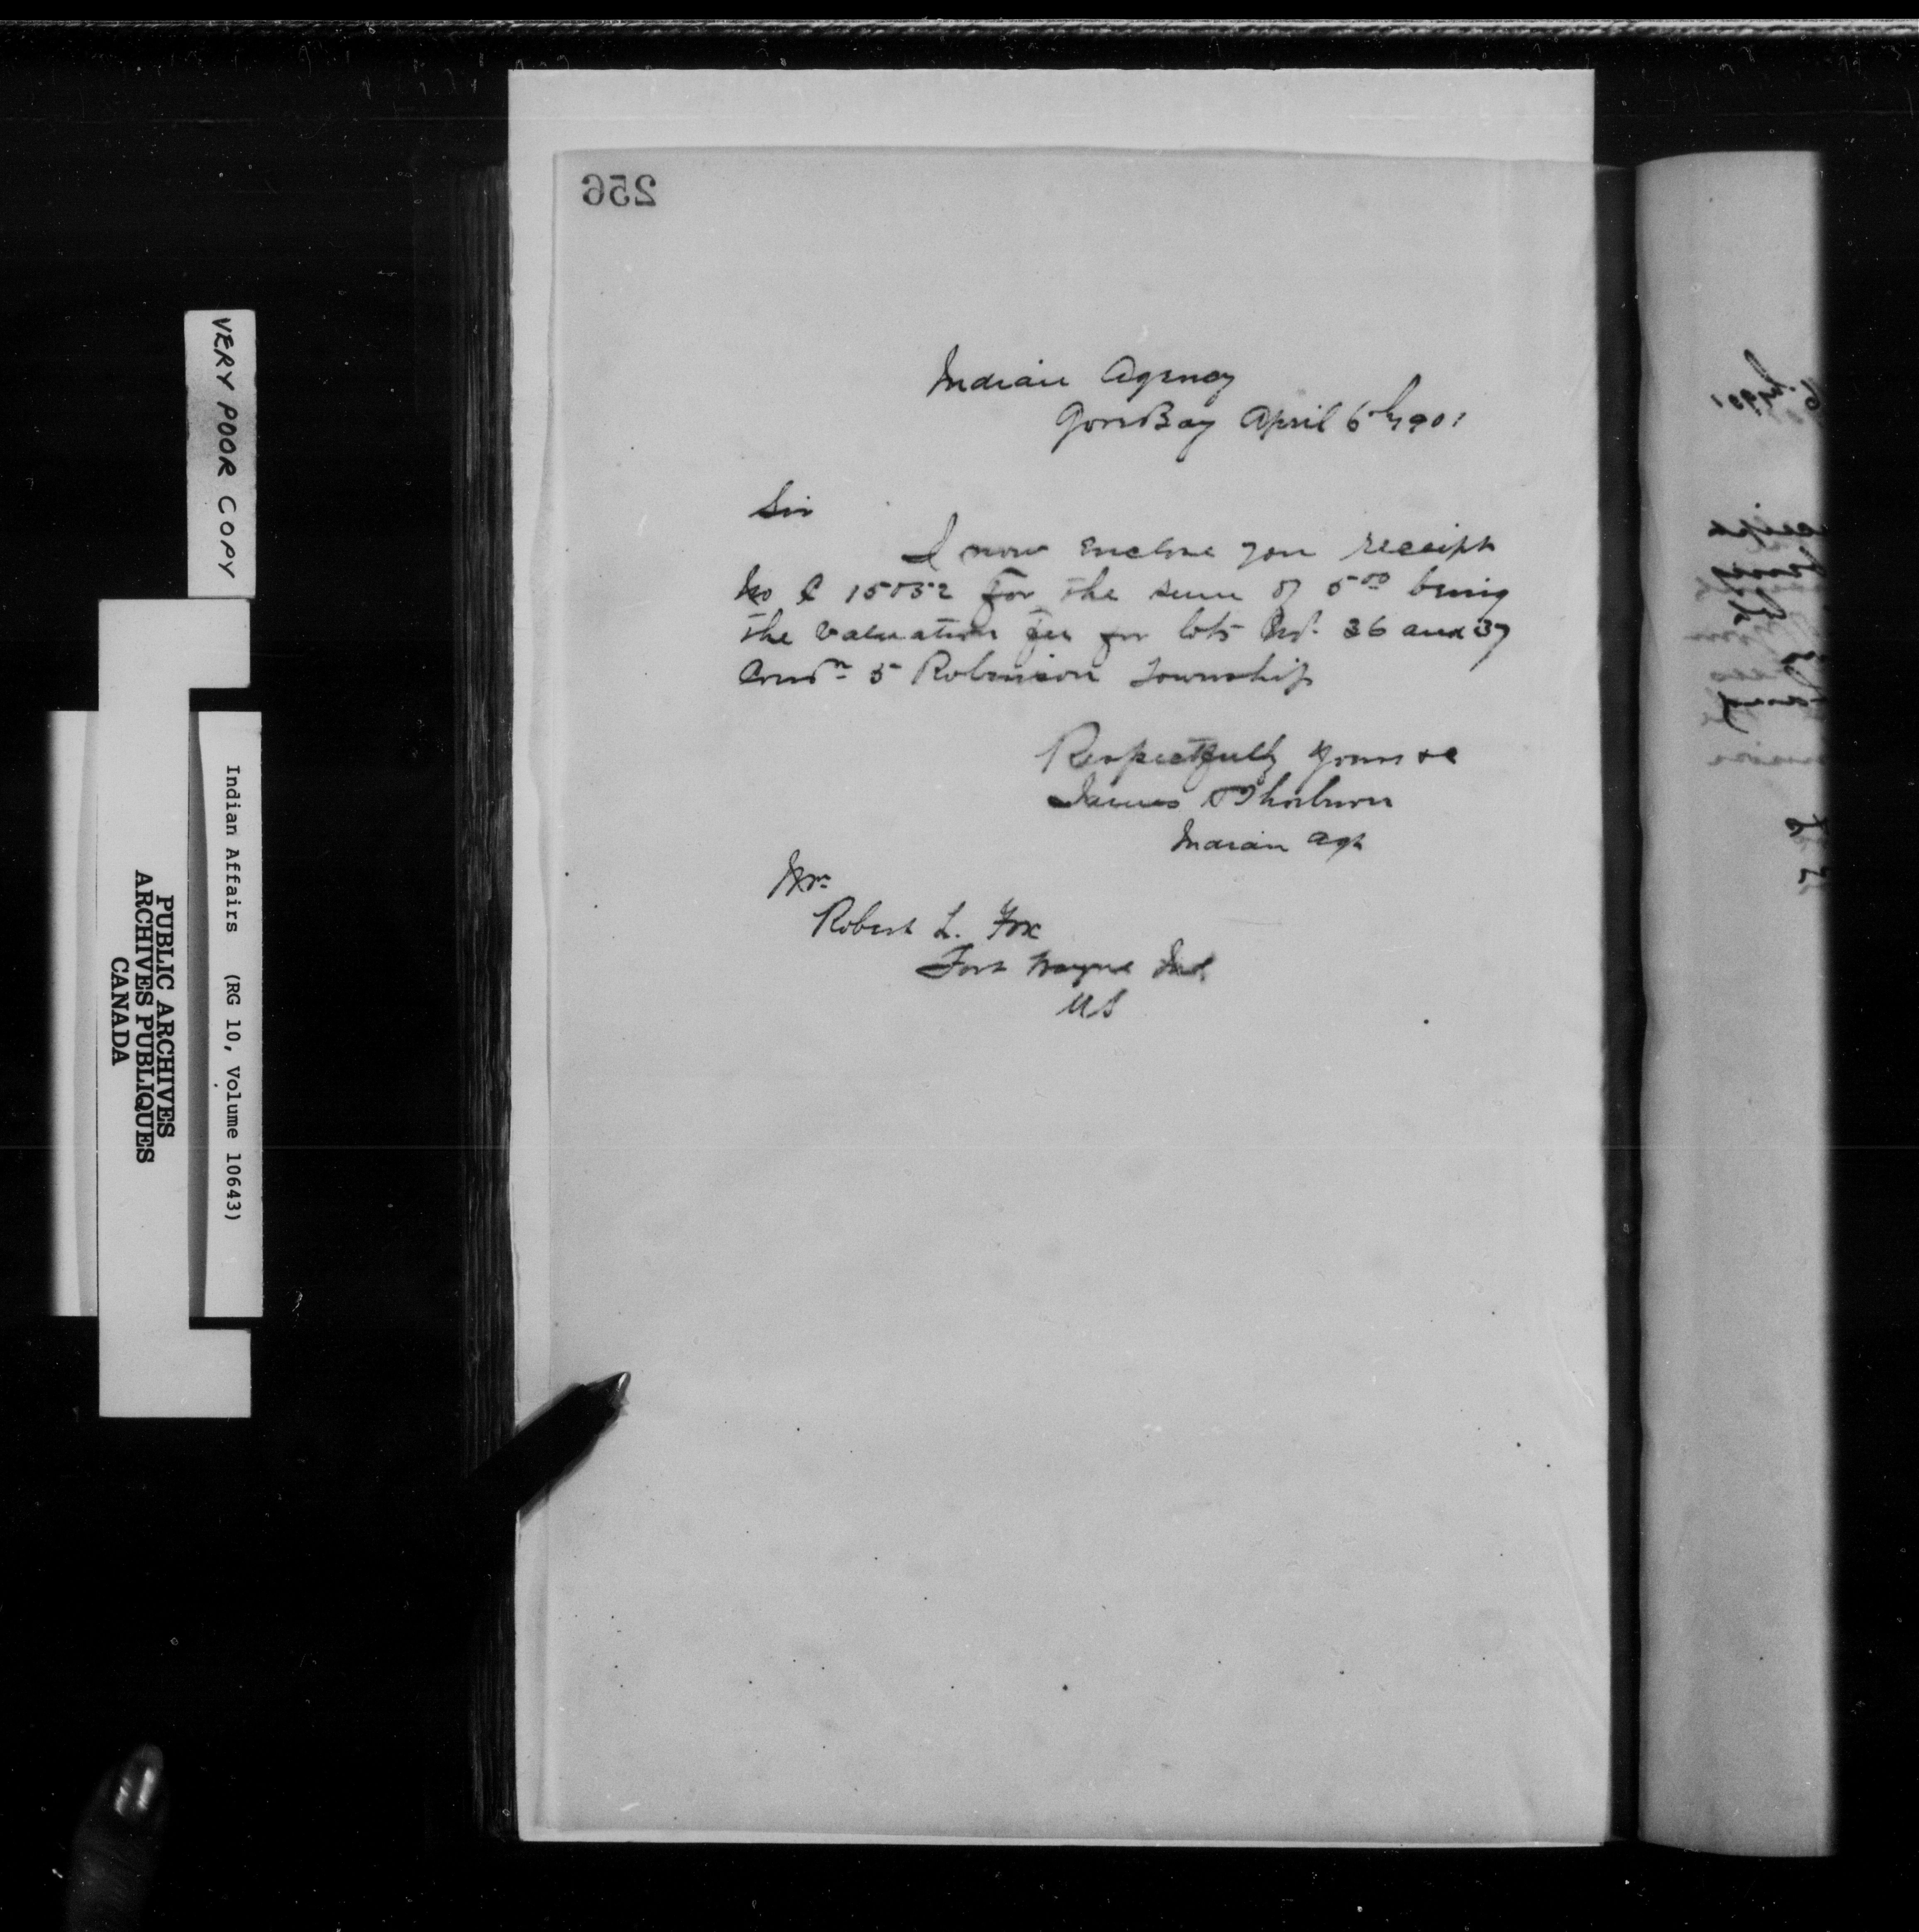 256
Indian Agency
Gore Bay April 6th 1901
Sir
I now enclose you receipt
No C 15052 For the sum of 5 00 being
the valuation fee for lots No. 36 and 37
Conn 5 Robinson Township
Respectfully yours &c
James Thorburn
Indian Agt
Mr
Robert L. Fox
Fort Wayne Ind.
US
VERY POOR COPY
Indian Affairs (RG 10, Volume 10643)
PUBLIC ARCHIVES
ARCHIVES PUBLIQUES
CANADA